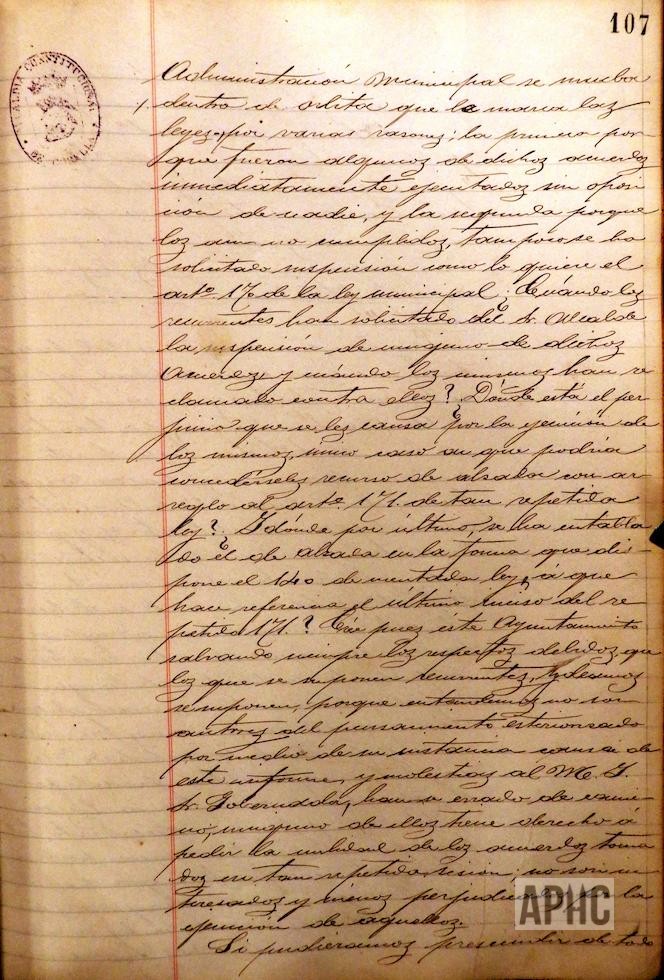 107
ALCALDIA CONSTITUCIONAL
Administración Municipal se mueba
dentro de orbita que le marca las
leyes por varias rasones; la primera por-
que fueron algunos de dichos acuerdos
inmediatamente ejecutados sin oposi-
ción de nadie, y la segunda porque
los aun no cumplidos, tampoco se ha
solicitado suspensión como lo quiere el
artº. 170 de la ley municipal ¿Cuándo los
recurrentes han solicitado del Sr. Alcalde
la suspensión de ninguno de dichos
acuerdos y cuándo los mismos han re
clamado contra ellos? ¿Dónde está el per-
juicio que se les causa por la ejecución de
los mismos, unico caso en que podria
concedérseles recurso de alzada con ar-
reglo al artº. 171. de tan repetida
ley? ¿Y dónde por último, se ha entabla
do el de alzada en la forma que dis-
pone el 140 de mentada ley, á que
hace referencia el último inciso del re
petido 171? Cree pues este Ayuntamiento
salvando siempre los respetos debidos que
los que se suponen recurrentes, y decimos
se suponen, porque entendemos no son
autores del pensamiento esteriorisado
por medio de su instancia causa de
este informe, y molestias al M. I.
Sr. Gobernador, han errado de cami-
no, ninguno de ellos tiene derecho á
pedir la nulidad de los acuerdos toma
dos en tan repetida sesión: no son in
teresados y menos perjudicados por la
ejecución de aquellos.
Si pudieramos prescindir de todo
APHC